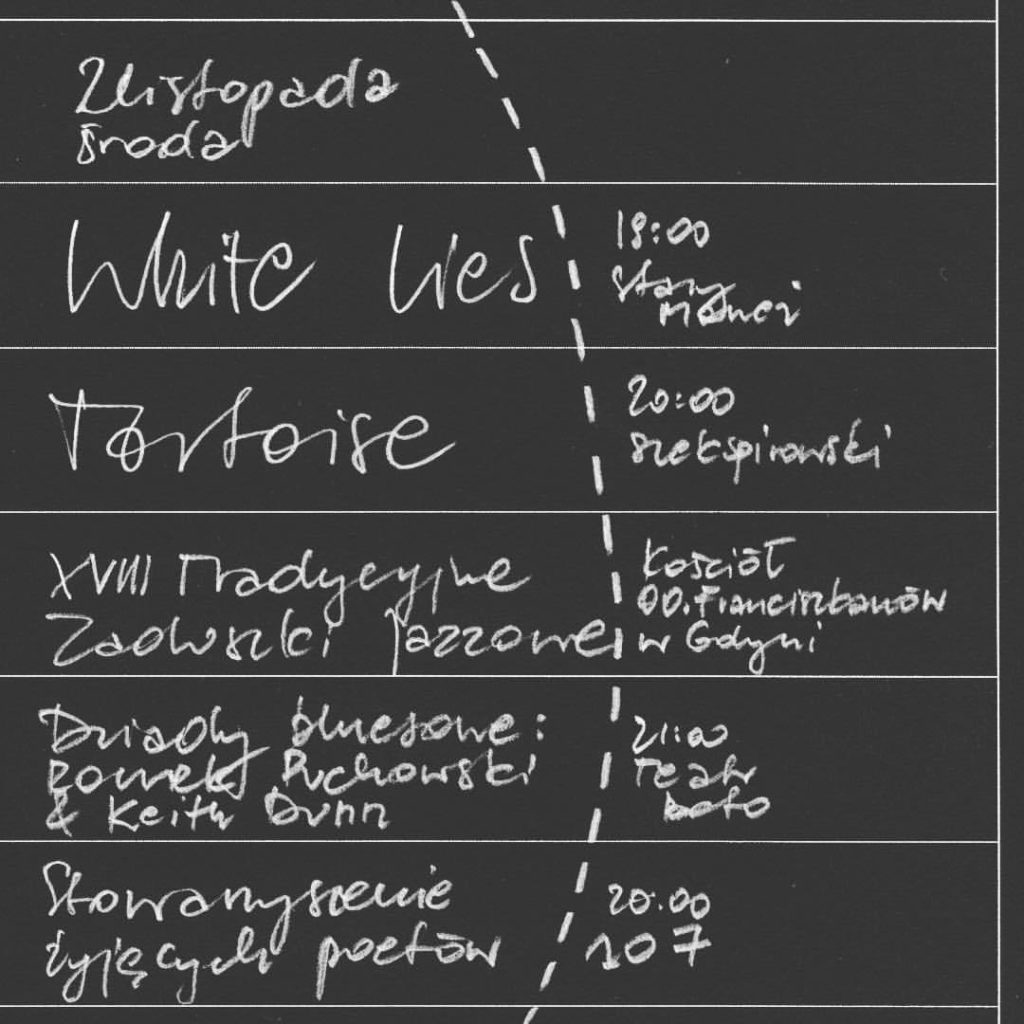 2 listopada
środa
White Lies
19:00
Stary
Maneż
Tortoise
20:00
szekspirowski
XVIII Tradycyjne
Zaduszki Jazzowe
Kościół
OO. Franciszkanów
w Gdyni
Dziady bluesowe:
Romek Puchowski
& Keith Dunn
21:00
Teatr
boto
Stowarzyszenie
żyjących poetów
20.00
107